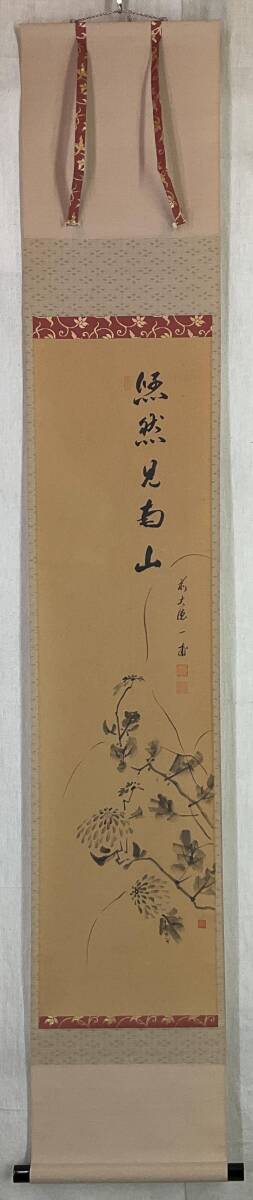 悠然見南山
前大徳一甫